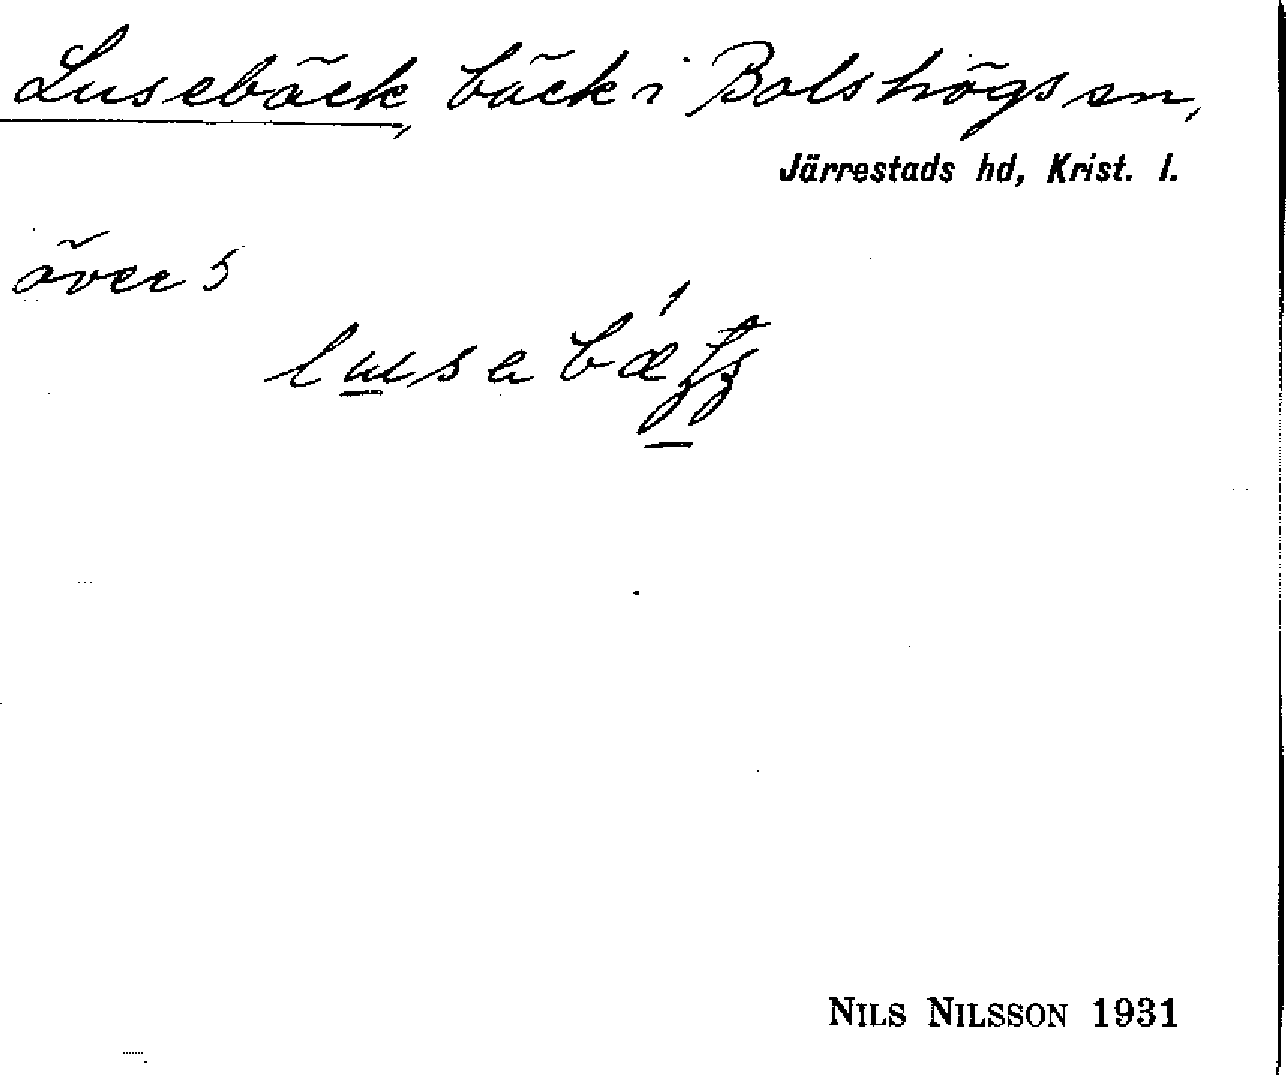 Lusebäck, bäck i Bolshögs sn,
Järrestads hd, Krist. l.
över 5
NILS NILSSON 1931